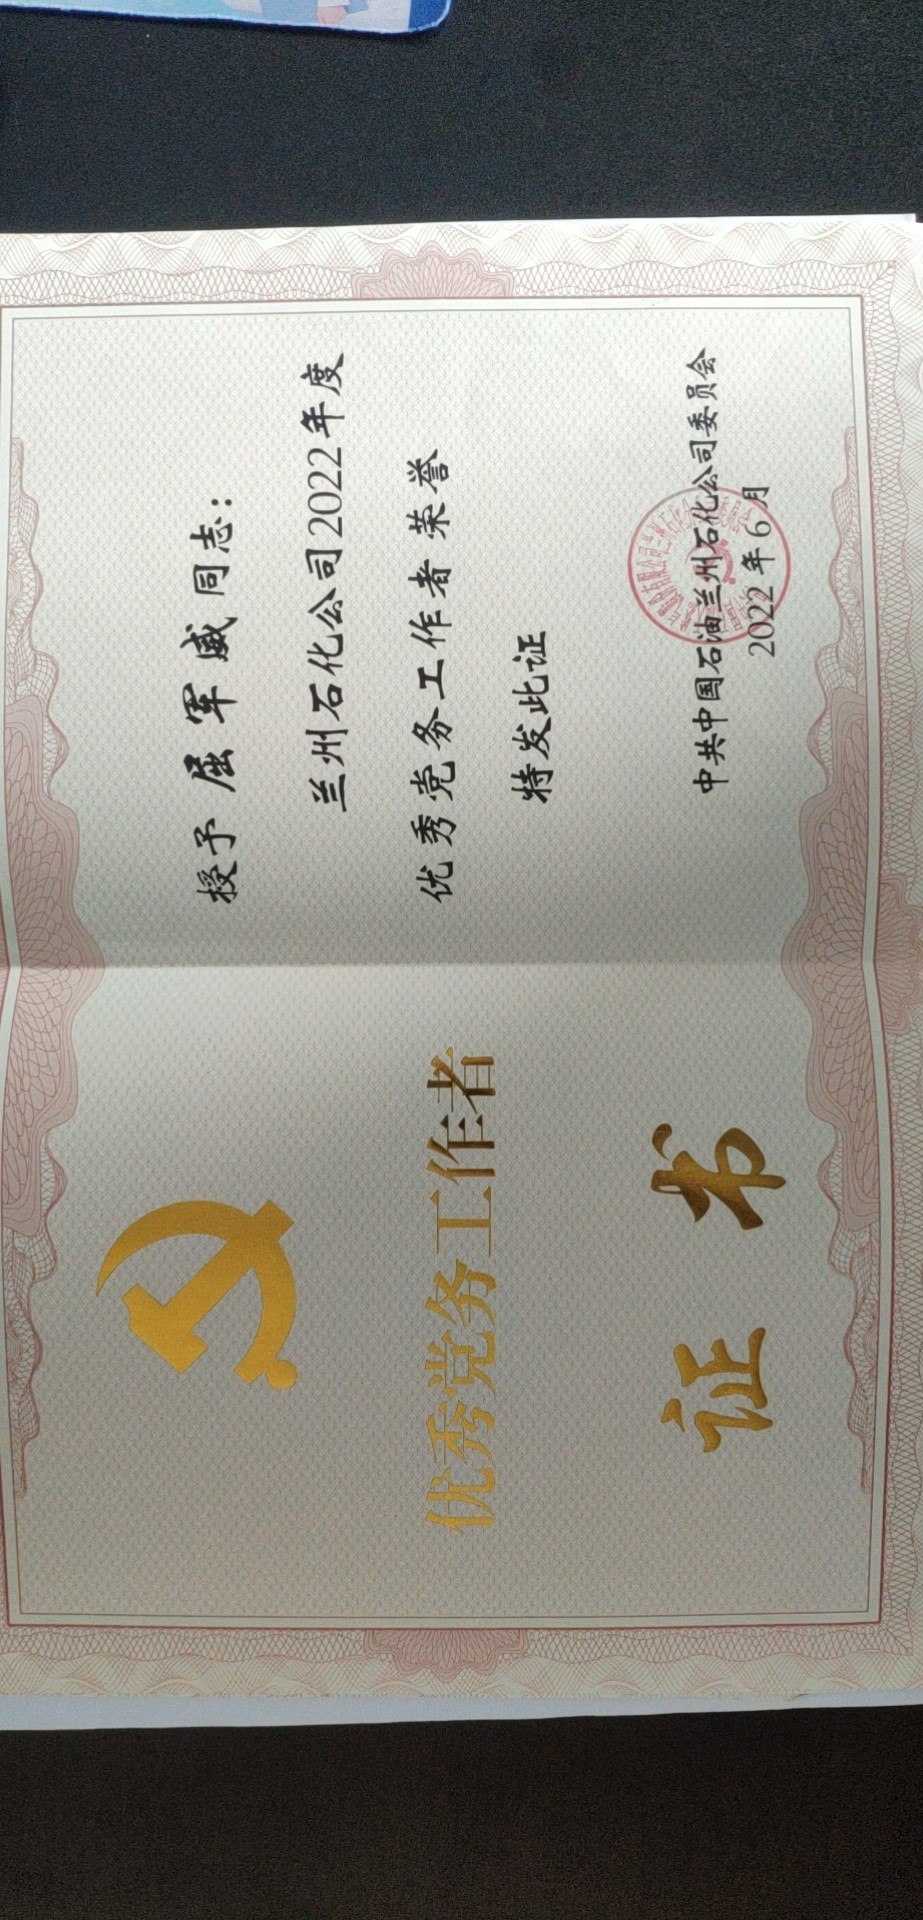 优秀党务工作者
证书
授予 屈军威 同志：
兰州石化公司2022年度
优秀党务工作者荣誉
特发此证
中共中国石油兰州石化公司委员会
2022年6月